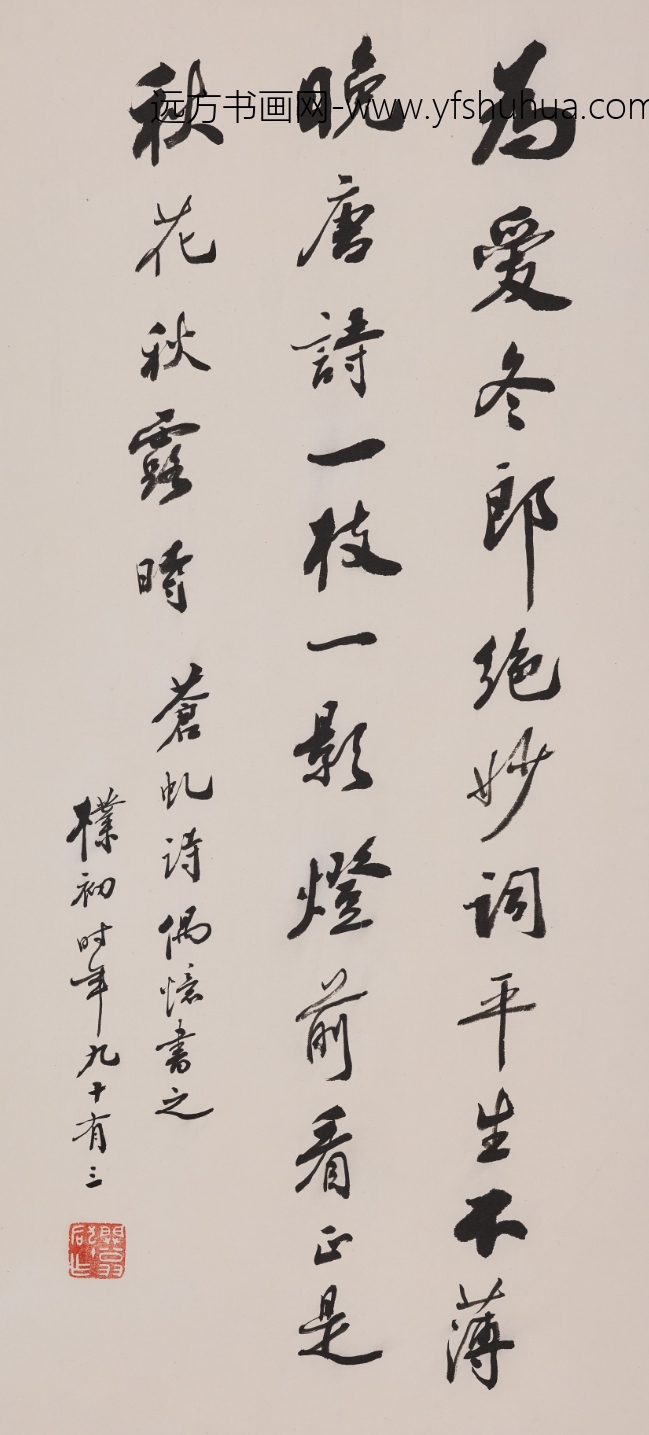 为爱冬郎绝妙詞平生不薄
晚唐詩一枝一影燈前看正是
秋花秋露時 蒼虬诗偶憶書之
樸初时年九十有三
远方书画网-www.yfshuhua.com